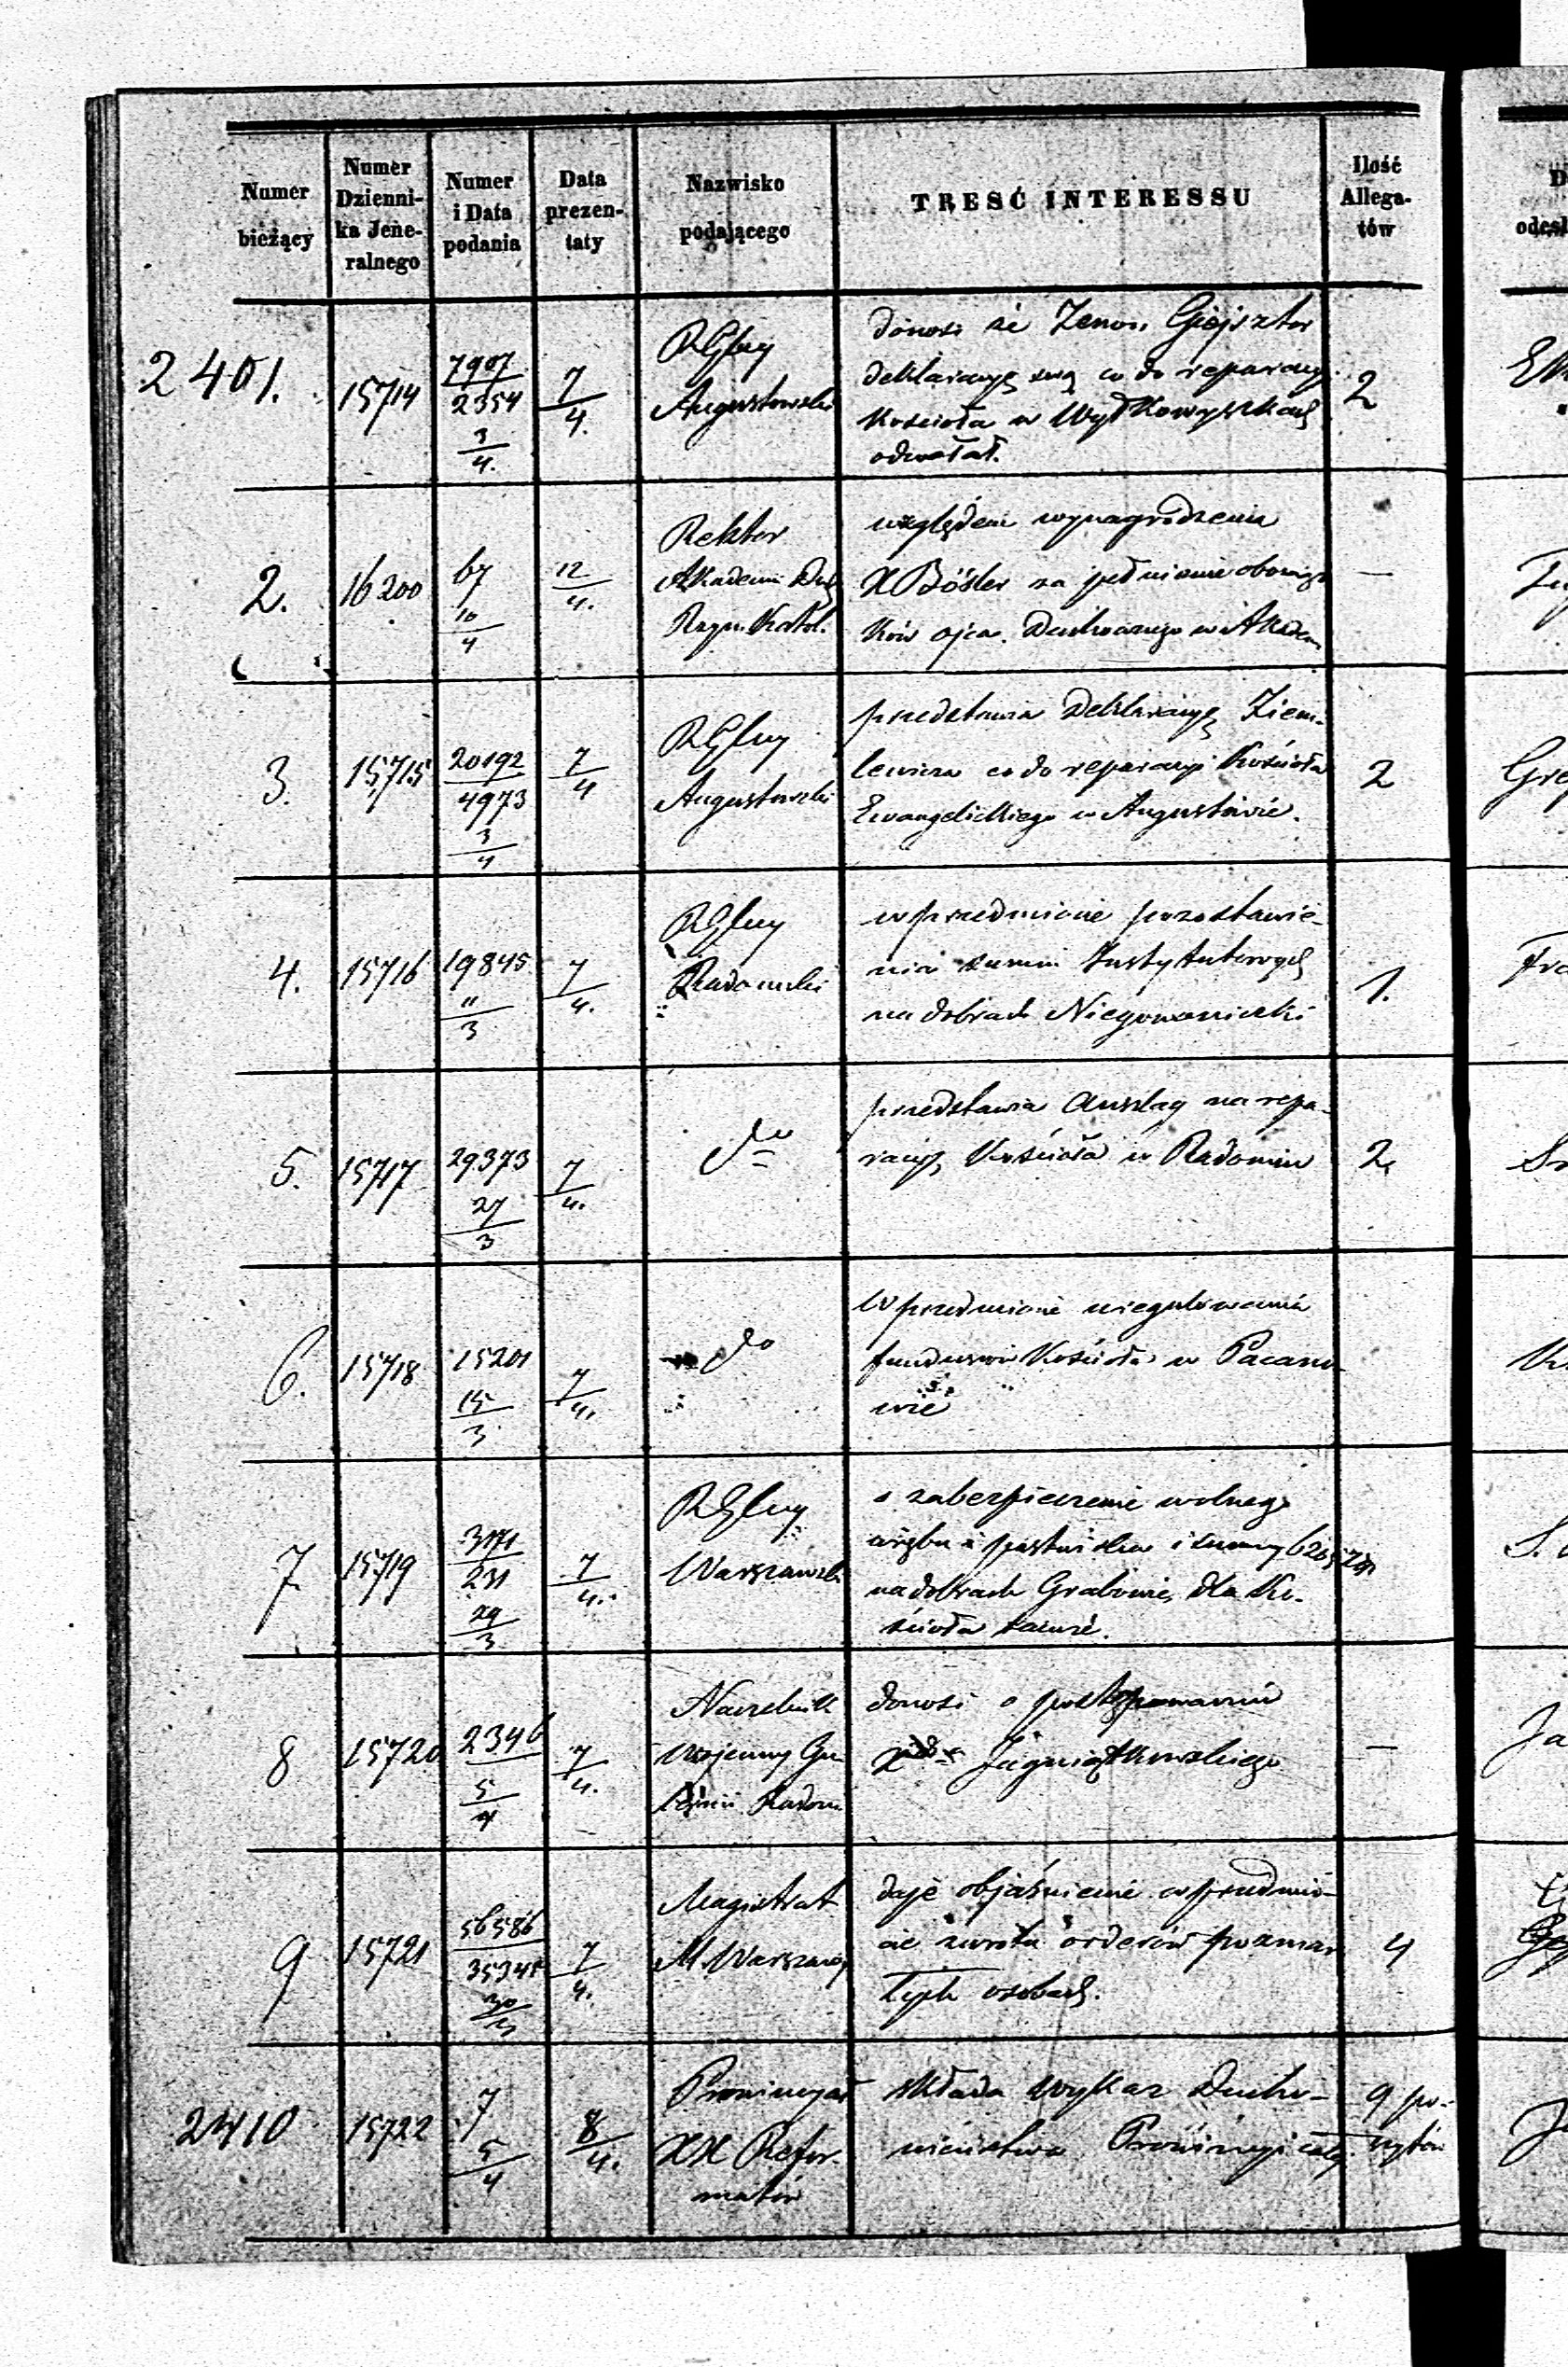 Numer bieżący
Numer Dziennika Jeneralnego
Numer i Data podania
Data prezentaty
Nazwisko podającego
TREŚĆ INTERESSU
Ilość Allegatów
2401.
15714
7907
2354
3/4.
7/4.
RGlny
Augustowski
donosi że Zenon Giejsztor
deklaracyę swą co do reparacyi
Kościoła w Wyłkowyszkach
odwołał.
2
2.
16200
67
10/4
12/4.
Rektor
Akademii Duch
Rzym. Katol.
względem wynagrodzenia
X Bösler za pełnienie obowiąz
ków ojca Duchownego w Akadem
—
3.
15715
20192
4973
3/4
7/4
RGlny
Augustowski
przedstawia deklaracyę Ziem-
lewicza co do reparacyi Kościoła
Ewangelickiego w Augustowie.
2
4.
15716
19845
11/3
7/4.
RGlny
Radomski
w przedmiocie pozostawie-
nia summ Instytutowych
na dobrach Niegowoniczki
1.
5.
15717
29373
27/3
7/4.
do
przedstawia Anszlag na repa-
racyę Kościoła w Radomiu
2.
6.
15718
15201
15/3
7/4.
do
w przedmiocie uregulowania
funduszów Kościoła w Pacano-
wie
7.
15719
3171
231
29/3
7/4.
RGlny
Warszawski
o zabezpieczenie wolnego
wrębu i pastwiska i summy
na dobrach Grabowie, dla Ko-
ścioła
8
15720
2346
5/4
7/4.
Naczelnik
Wojenny Gu
bernii Radom
donosi o postępowaniu
X Jagniątkowskiego
—
9
15721
56586
35345
30/3
7/4.
Magistrat
M. Warszawy
daje objaśnienie w przedmio-
cie zwrotu orderów po zmar
łych osobach.
4
2410
15722
7
5/4
8/4.
Prowincyał
XX Refor-
matów
składa wykaz Ducho-
wieństwa Prowincyi całej
9 po-
szytów